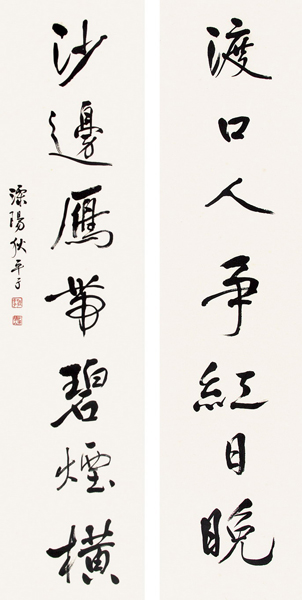 渡口人争紅日晚
沙邊鴈帶碧煙橫
溧陽狄平子